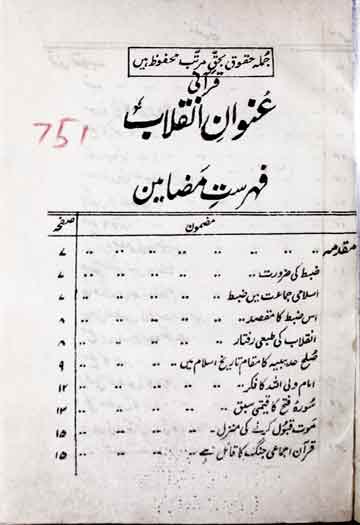 جملہ حقوق بحقِ مرتّب محفوظ ہیں
قرآنی
عُنوانِ انقلاب
751
فہرستِ مَضامین
مضمون صفحہ
مقدمہ .. .. .. .. .. .. ۷
ضبط کی ضرورت .. .. .. .. .. ۷
اسلامی جماعت میں ضبط .. .. .. .. ۷
اس ضبط کا مقصد .. .. .. .. .. ۸
انقلاب کی طبعی رفتار .. .. .. .. ۸
صُلح حدیبیہ کا مقام تاریخِ اسلام میں .. .. .. ۹
امام ولی اللہ کا فکر .. .. .. .. .. ۱۲
سُورۂ فتح کا قیمتی سبق .. .. .. .. ۱۳
موت قبُول کرنے کی منزل .. .. .. .. ۱۵
قرآن اجماعی جنگ کا قائل ہے .. .. .. ۱۵